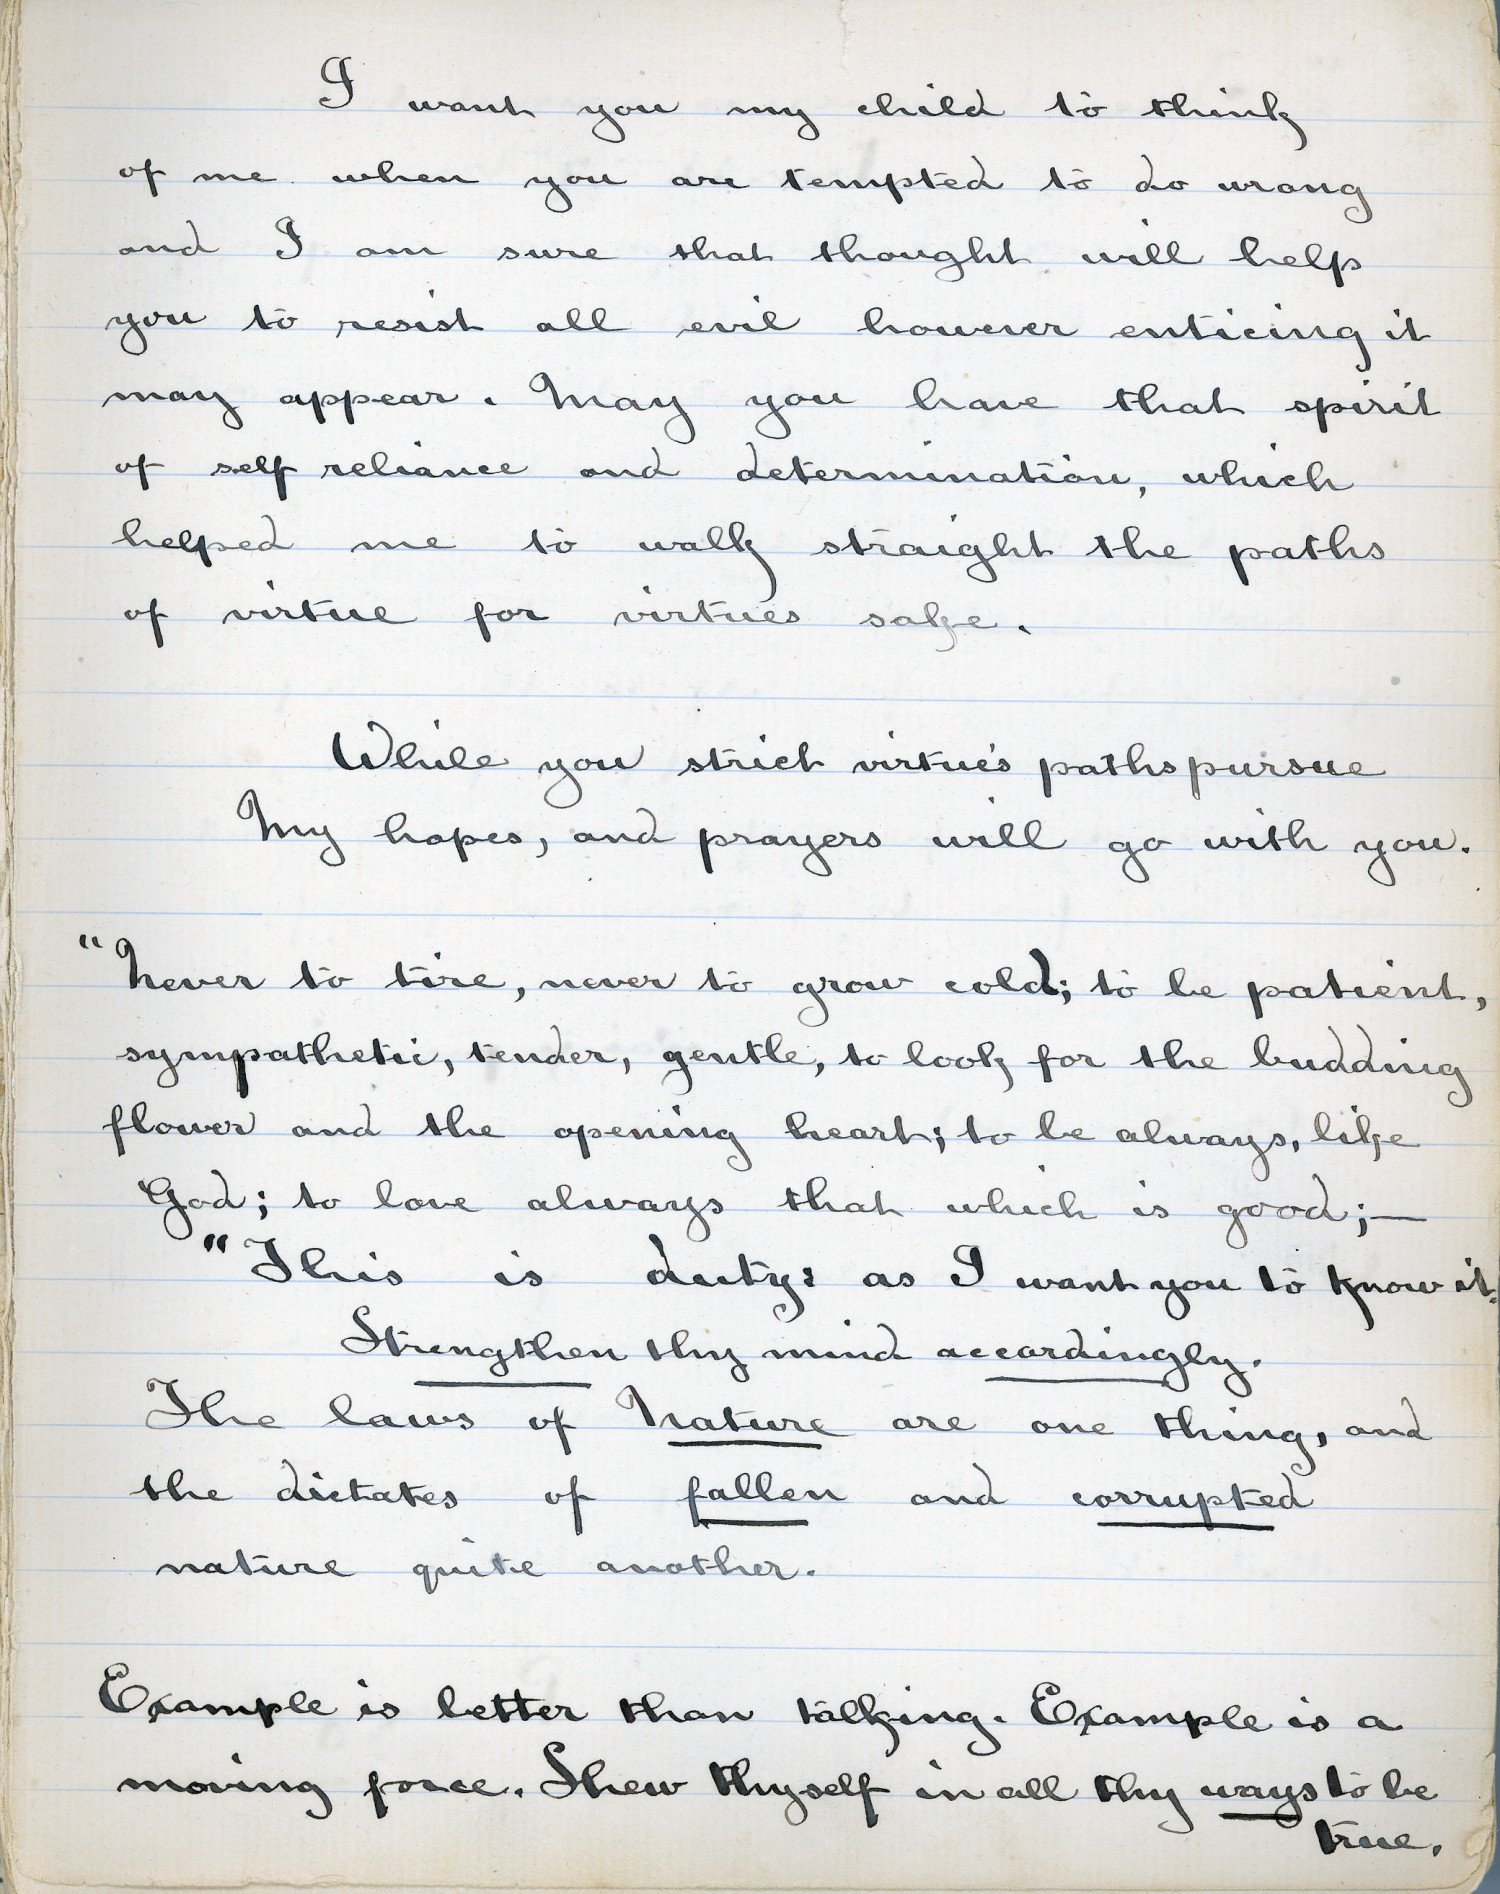 I want you my child to think
of me when you are tempted to do wrong
and I am sure that thought will help
you to resist all evil however enticing it
may appear. May you have that spirit
of self reliance and determination, which
helped me to walk straight the paths
of virtue for virtues sake.
While you strict virtue's paths pursue
My hopes, and prayers will go with you.
"Never to tire, never to grow cold; to be patient,
sympathetic, tender, gentle, to look for the budding
flower and the opening heart; to be always, like
God; to love always that which is good;—
"This is duty: as I want you to know it.
Strengthen thy mind accordingly.
The laws of Nature are one thing, and
the dictates of fallen and corrupted
nature quite another.
Example is better than talking. Example is a
moving force. Shew thyself in all thy ways to be
true.